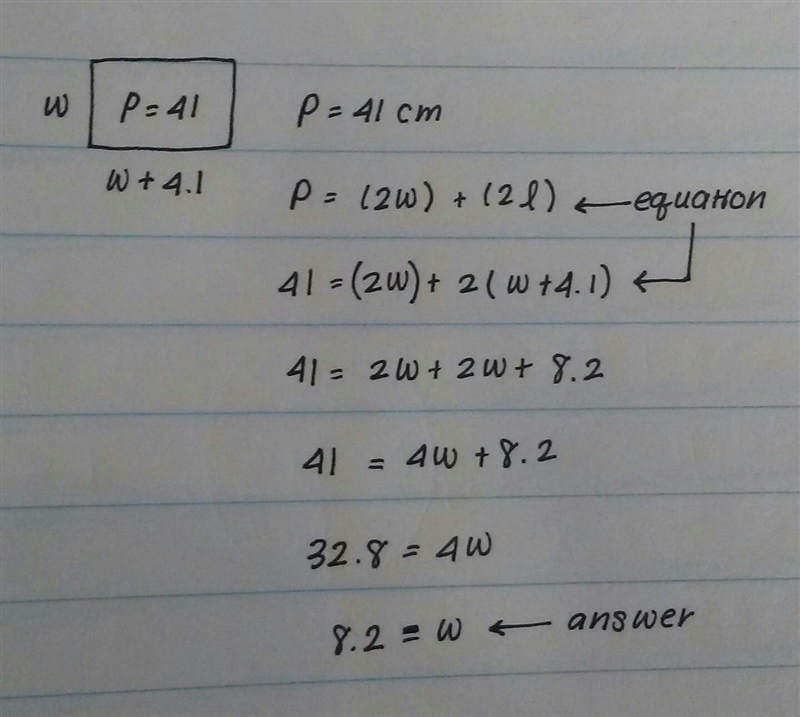 w P = 41 P = 41 cm
w + 4.1
P = (2w) + (2l) ← equation
41 = (2w) + 2(w + 4.1) ←
41 = 2w + 2w + 8.2
41 = 4w + 8.2
32.8 = 4w
8.2 = w ← answer